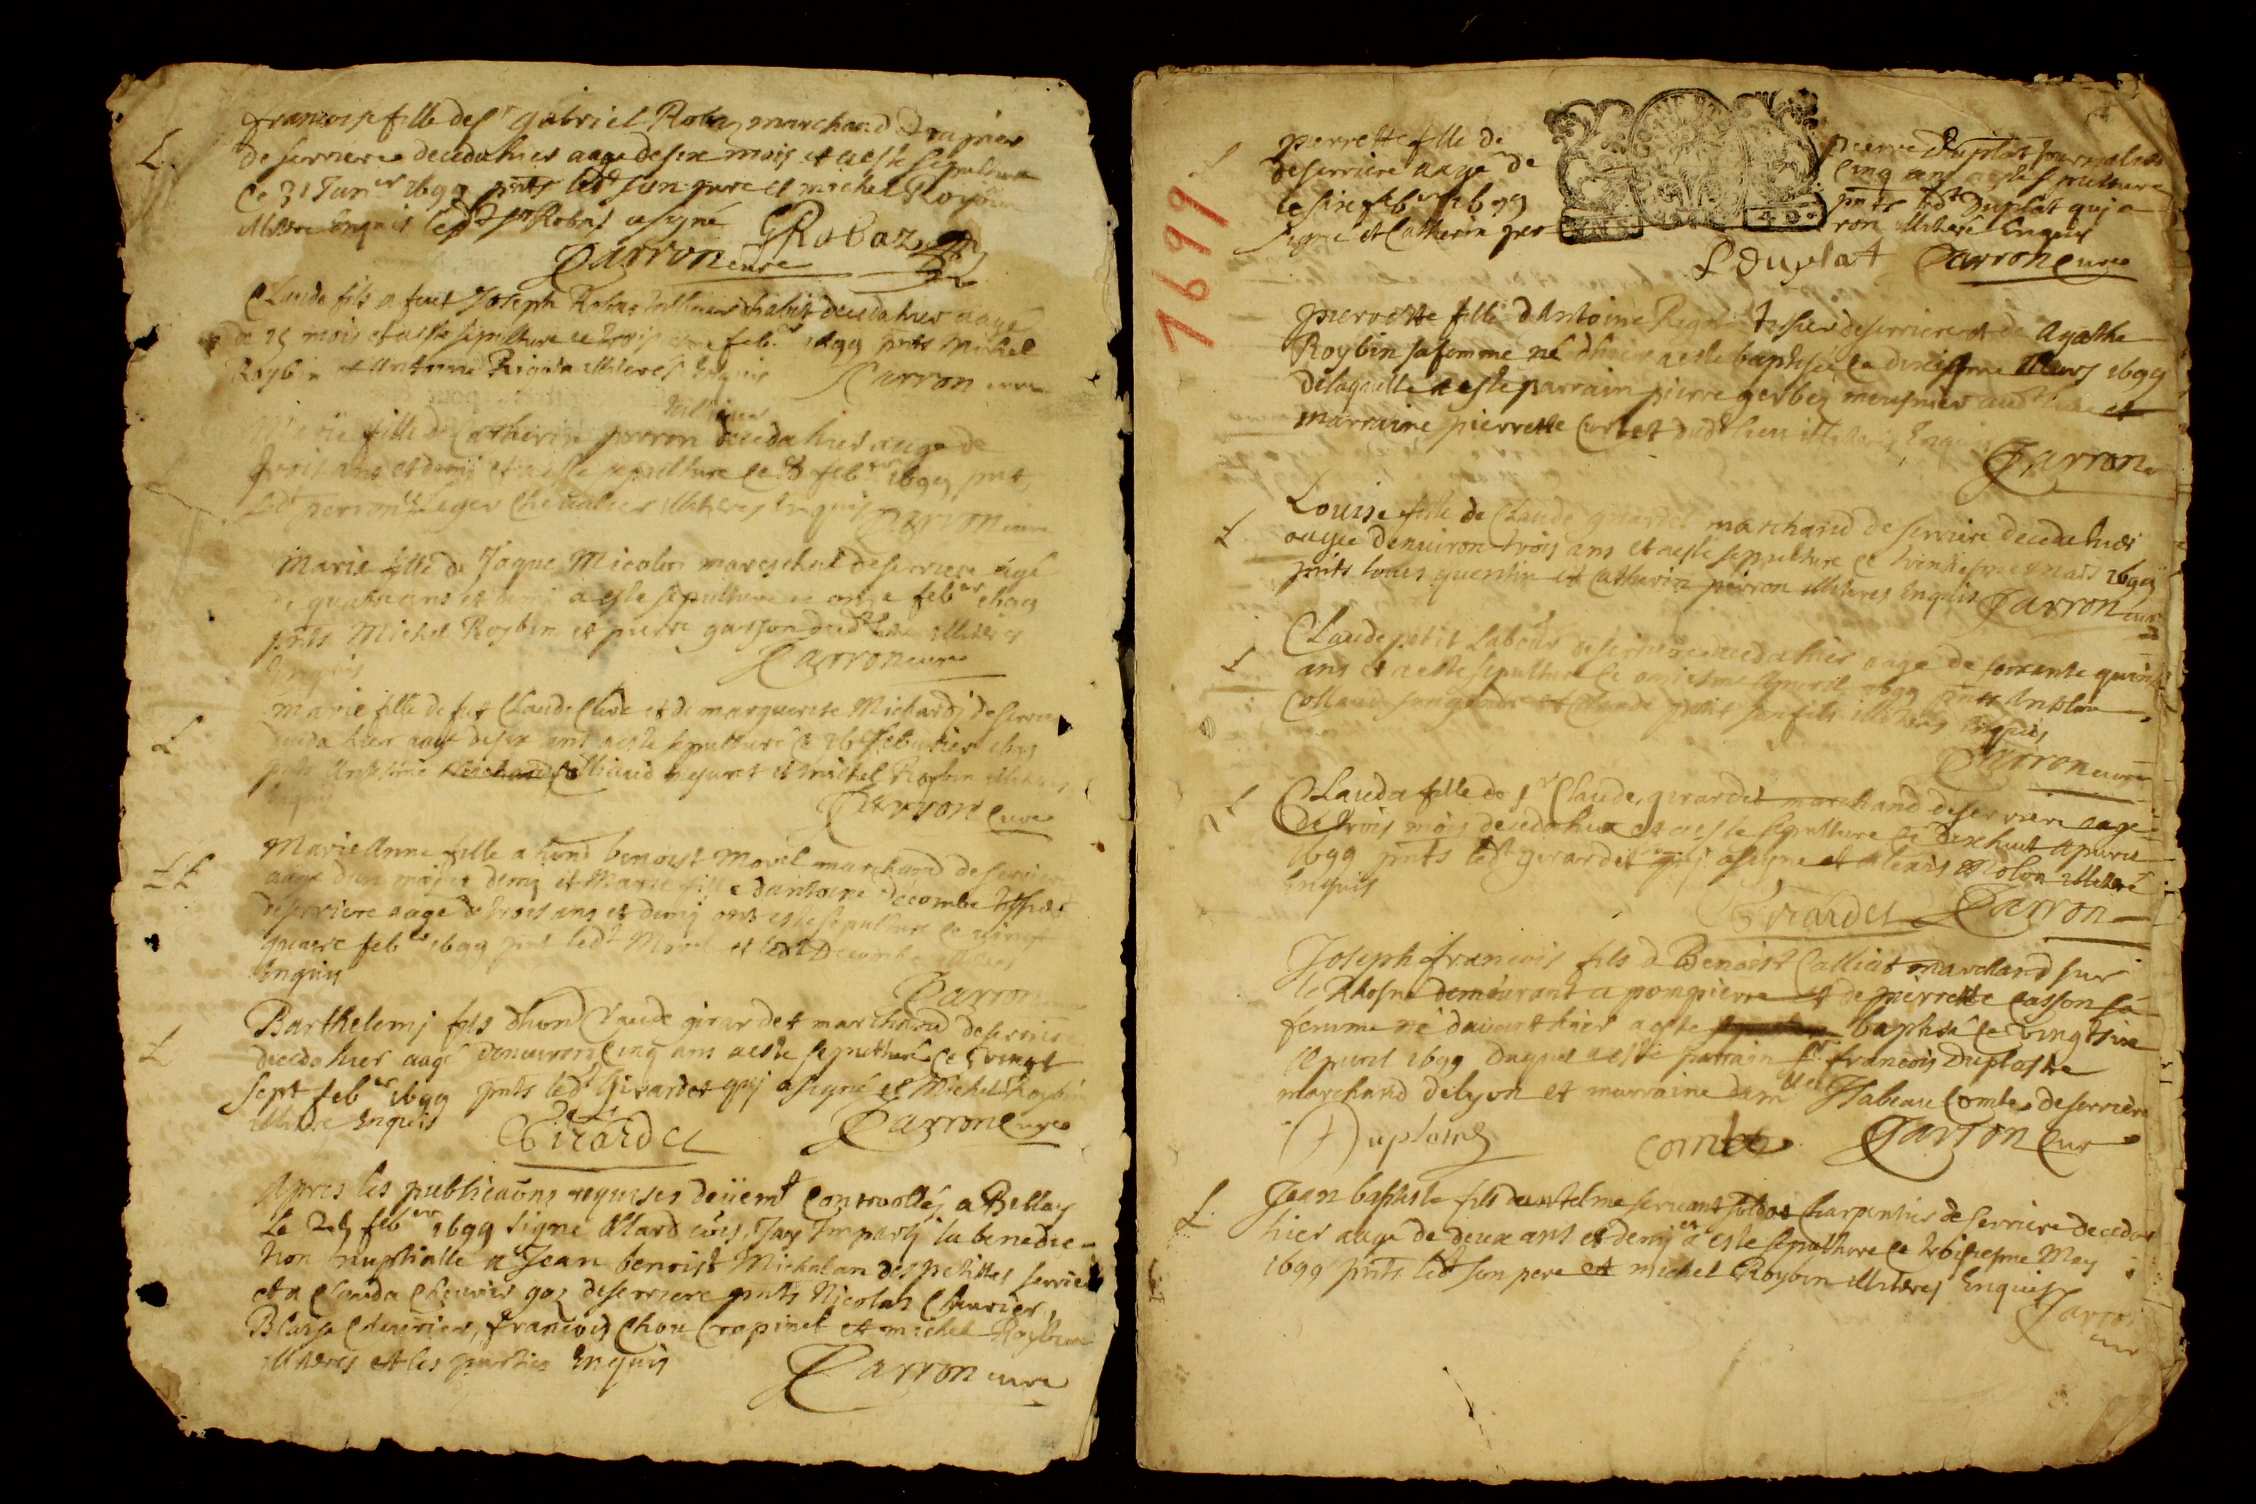 francoise fille de Sr gabriel Robaz marchand
de serriere decedahier aagé de six mois et aesté sepulturé
ce 31 Janer 1699 pnts ledt son pere et michel Roybin
illitere Enquis ledt sr Robaz a signé
GRobaz
Carron curé
Claude fils a feut Joseph Robaz decedahier aagé
de 15 mois et aesté sepulturé ce troisiesme febr 1699 pnts Michel
Roybin et Antoine illiteres Enquis
Carron curé
fille de Catherin perron decedahier aagé de
trois ans et demij et aesté sepulturé ce 8 febvr 1699 pnt
Ledt perron et Leger Chevalier illiteres Enquis
Carron curé
Marie fille de Jaque Micolon mareschal deserriere agé
de quatre ans et demj a esté sepulturé ce onze febver 1699
pnts Michel Roybin et pierre garson dudt lieu illiteres
Enquis
Carron curé
Marie fille de fut Claude Clere et de marguerite Michard deserriere
deceda hier aagé desix ans aesté sepulturé ce 16 feburier 1699
pnts Anthelme et michel Roybin illiteres
Enquis
Carron Curé
MarieAnne fille a hond benoist Morel marchand de serriere
aagé dun mois et demj et Marie fille dantoine decombe
deserriere aagé de trois ans et demj ont esté sepulturé ce vingt
quatre febver 1699 pnt ledt Morel et ledt Decombe illiteres
Enquis
Carron
Barthelemj fils dhond Claude girardet marchand deserriere
decedahier aagé denuiron Cinq ans aesté sepulturé ce vingt
sept febver 1699 pnts ledt Girardet quj asigné et Michel Roybin
illitere Enquis
Girardet
Carron Curé
Apres les publicaõns requises deüemt Controollés a Bellay
le febver 1699 signé Allard cõis, Jay Imparty la benedic-
tion nuptialle a Jean benoist Michalan des petittes serriere
et a Clauda Cheurier goz deserriere pnts Nicolas Cheurier,
Blaise Cheurier, francois Chou Crapinel et michel Roybin
illiteres et les parties Enquis
Carron curé
1699
perrette fille de pierre Duplat journalier
deserriere aagé de Cinq ans aesté sepulturé
le six febver 1699 pnts ledt Duplat quj a
signé et Catherin perron illiteré Enquis
P duplat
Carron Curé
pierrette fille dAntoine tissier deserriere et de Agathe
Roybin safemme né dhier aesté baptisée ce dixiesme Mars 1699
delaquelle aesté parrain pierre gerbez meusnier audt lieu et
marraine pierrette Curtet dudt lieu illiteres Enquis
Carron
Louise fille de Claude girardet marchand de serriere decedahier
aagée denuiron trois ans et aesté sepulturé ce trentiesme mars 1699
pnts Louis quentin et Catherin perron illiteres Enquis
Carron curé
Claude petit Laboúr deserriere decedahier aagé de soixante quinze
ans et a esté sepulturé ce onziesme Apvril 1699 pnts Anthme
Collaud son gendre et Claude petit son fils illiteres Enquis
Carron curé
Clauda fille de sr Claude girardet marchand deserriere aagé
de trois mois decedahier et aesté sepulturé ce dixhuit Apuril
1699 pnts ledt girardet quj a signé et Alexis Molon illiteré
Enquis
Girardet
Carron
Joseph francois fils d Benoist Calliet marchand sur
le Rhosne demeurant a pompierre et de pierrette Casson sa
femme né dauanthier aesté baptisé ce vingtsix
Apuril 1699 duquel aesté parrain Sr francois Duplastre
marchand delyon et marraine damlle Isabeau Combe deserriere
Duplatre
combe
Carron Curé
Jean baptiste fils danthelme seruant soldat Charpentier de serriere deceda
hier aagé de deux ans et demj et a esté sepulturé ce troisiesme May
1699 pnts ledt son pere et michel Roybin illiteres Enquis
Carron
curé